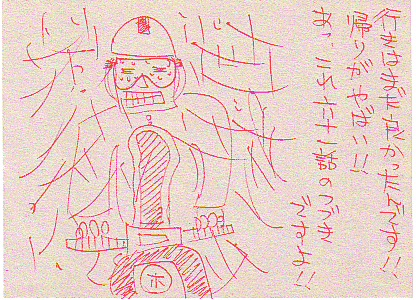 行きはまだ良かったんです!!
帰りがやばい!!
あっ、これ六十二話のつづき
ですよ!!
ホ